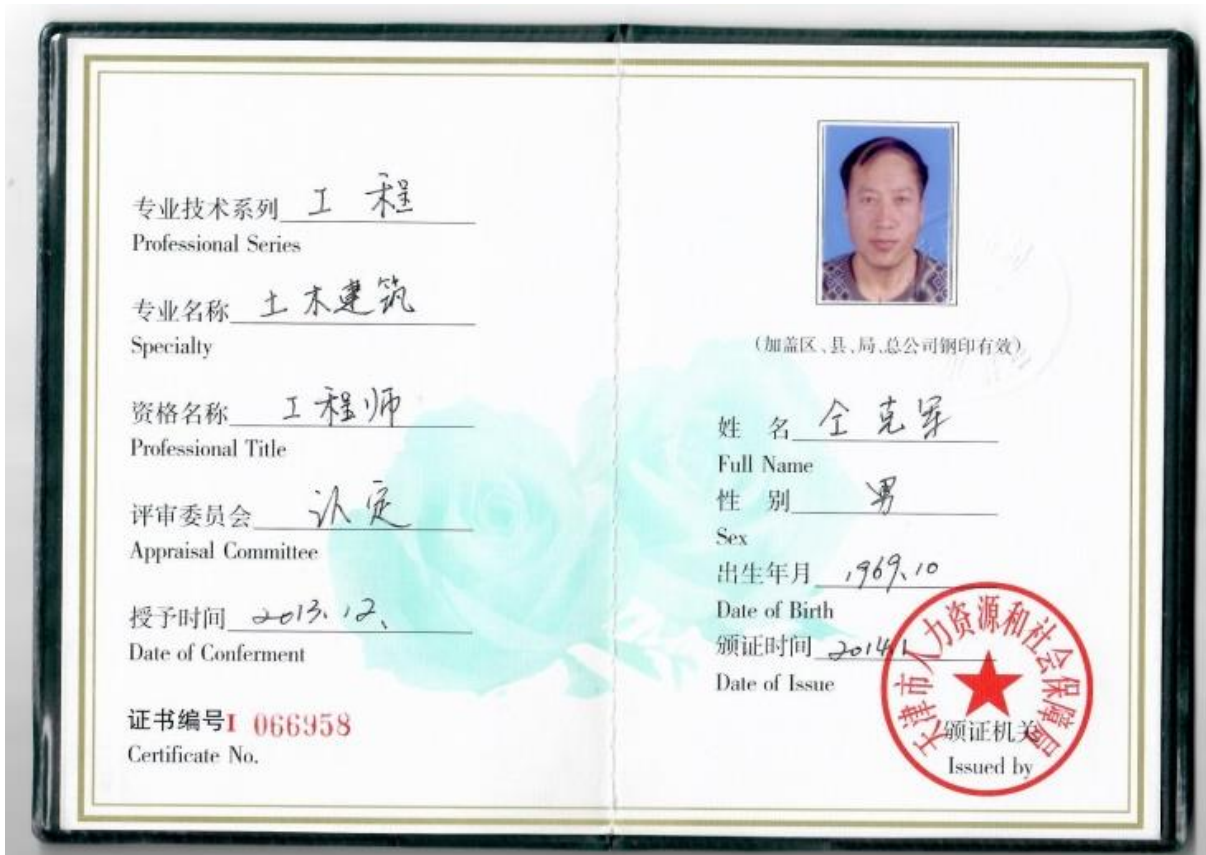 专业技术系列 工程
Professional Series
专业名称 土木建筑
Specialty
资格名称 工程师
Professional Title
评审委员会 认定
Appraisal Committee
授予时间 2013.12、
Date of Conferment
证书编号I 066958
Certificate No.
(加盖区、县、局、总公司钢印有效)
姓 名 仝克军
Full Name
性 别 男
Sex
出生年月 1969.10
Date of Birth
颁证时间 2014.1
Date of Issue
天津市人力资源和社会保障局
颁证机关
Issued by